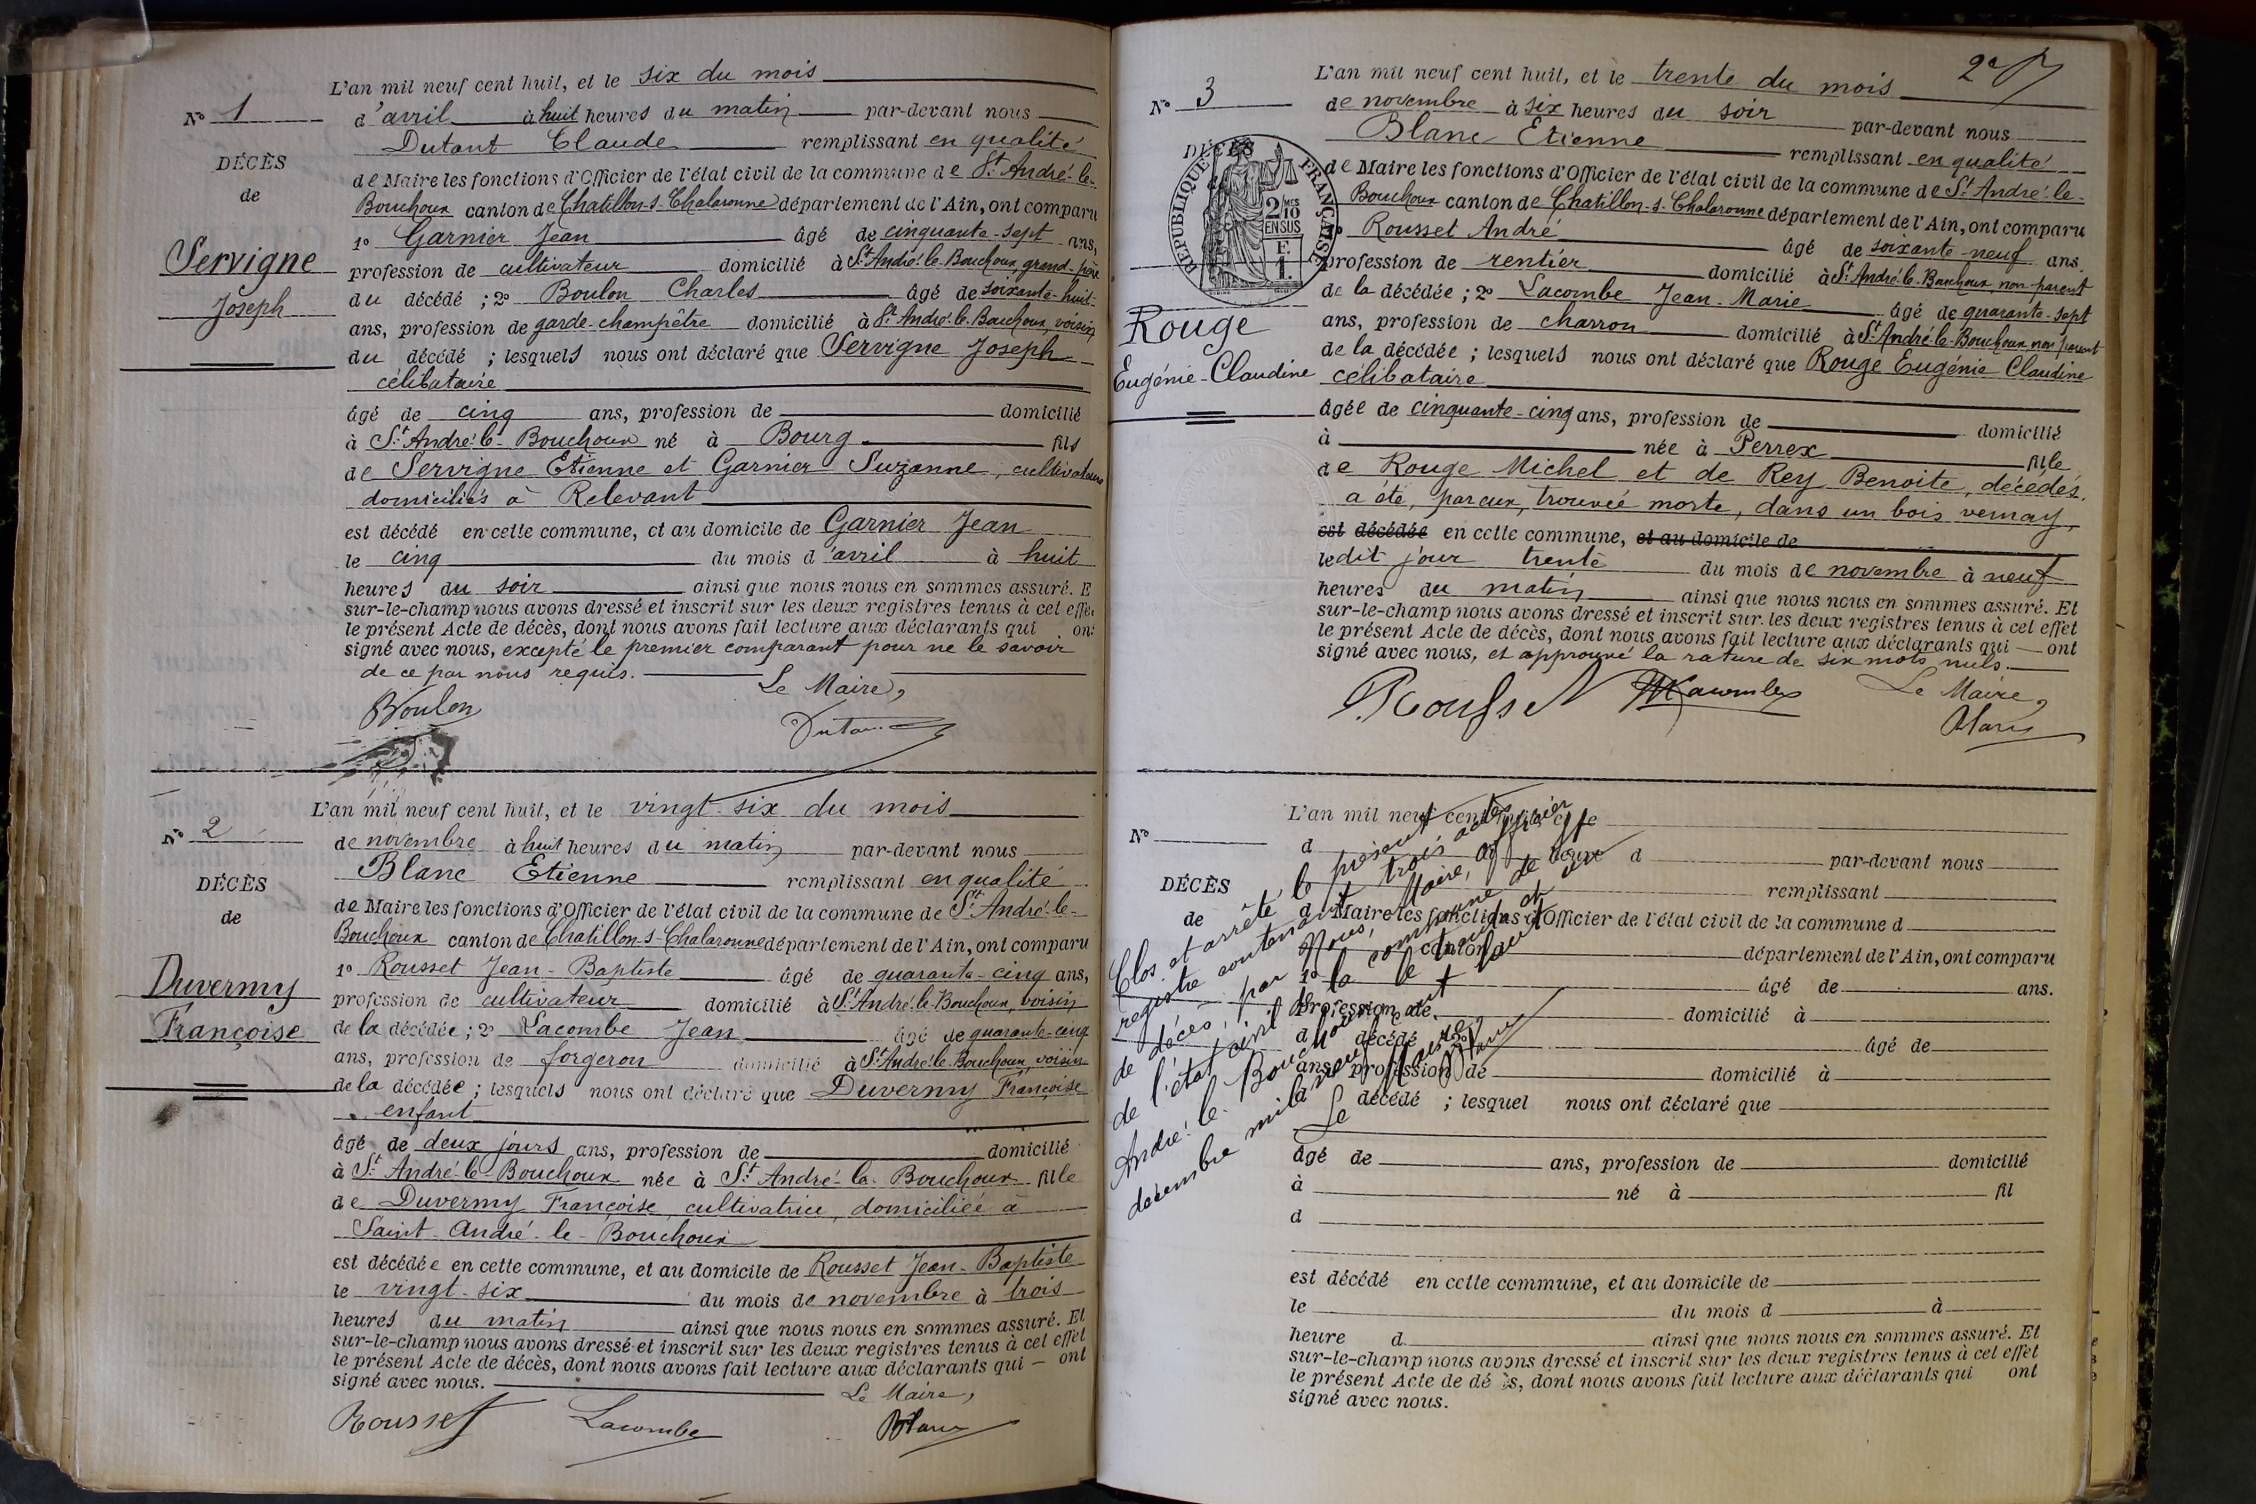 L'an mil neuf cent huit, et le six du mois
N° 1
d'avril à huit heures du matin par-devant nous
Dutant Claude remplissant en qualité
DÉCÈS
de Maire les fonctions d'Officier de l'état civil de la commune de St. André-le-
de
Bouchoux canton de Chatillon-s-Chalaronne département de l'Ain, ont comparu
1° Garnier Jean âgé de cinquante-sept ans,
Servigne
profession de cultivateur domicilié à St. André-le-Bouchoux, grand-père
Joseph
du décédé ; 2° Boulon Charles âgé de soixante-huit
ans, profession de garde-champêtre domicilié à St. André-le-Bouchoux, voisin
du décédé ; lesquels nous ont déclaré que Servigne Joseph
célibataire
âgé de cinq ans, profession de domicilié
à St. André-le-Bouchoux né à Bourg fils
de Servigne Etienne et Garnier Suzanne, cultivateurs
domiciliés à Relevant
est décédé en cette commune, et au domicile de Garnier Jean
le cinq du mois d'avril à huit
heures du soir ainsi que nous nous en sommes assuré. E
sur-le-champ nous avons dressé et inscrit sur les deux registres tenus à cet effe
le présent Acte de décès, dont nous avons fait lecture aux déclarants qui on
signé avec nous, excepté le premier comparant pour ne le savoir
de ce par nous requis.
Le Maire,
Boulon
Dutant
L'an mil neuf cent huit, et le vingt-six du mois
N° 2
de novembre à huit heures du matin par-devant nous
Blanc Etienne remplissant en qualité
DÉCÈS
de Maire les fonctions d'Officier de l'état civil de la commune de St. André-le-
de
Bouchoux canton de Chatillon-s-Chalaronne département de l'Ain, ont comparu
1° Rousset Jean-Baptiste âgé de quarante-cinq ans,
Duvermy
profession de cultivateur domicilié à St. André-le-Bouchoux, voisin
Françoise
de la décédée ; 2° Lacombe Jean âgé de quarante-cinq
ans, profession de forgeron domicilié à St. André-le-Bouchoux, voisin
de la décédée ; lesquels nous ont déclaré que Duvermy Françoise
enfant
âgé de deux jours ans, profession de domicilié
à St. André-le-Bouchoux née à St. André-le-Bouchoux fille
de Duvermy Françoise, cultivatrice, domiciliée à
Saint-André-le-Bouchoux
est décédée en cette commune, et au domicile de Rousset Jean-Baptiste
le vingt-six du mois de novembre à trois
heures du matin ainsi que nous nous en sommes assuré. Et
sur-le-champ nous avons dressé et inscrit sur les deux registres tenus à cet effet
le présent Acte de décès, dont nous avons fait lecture aux déclarants qui — ont
signé avec nous.
Le Maire,
Rousset Lacombe Blanc
2e
L'an mil neuf cent huit, et le trente du mois
N° 3
de novembre à six heures du soir par-devant nous
Blanc Etienne remplissant en qualité
DÉCÈS
RÉPUBLIQUE FRANÇAISE
2/10 MES
EN SUS
E
1.
de Maire les fonctions d'Officier de l'état civil de la commune de St. André-le-
Bouchoux canton de Chatillon-s-Chalaronne département de l'Ain, ont comparu
Rousset André âgé de soixante-neuf ans.
profession de rentier domicilié à St. André-le-Bouchoux, non parent
de la décédée ; 2° Lacombe Jean-Marie âgé de quarante-sept
Rouge
ans, profession de charron domicilié à St. André-le-Bouchoux non parent
de la décédée ; lesquels nous ont déclaré que Rouge Eugénie Claudine
Eugénie-Claudine
célibataire
âgée de cinquante-cinq ans, profession de domicilié
à née à Perrex fille
de Rouge Michel et de Rey Benoite, décédés.
a été, par eux, trouvée morte, dans un bois vernay,
est décédée en cette commune, et au domicile de
le dit jour trente du mois de novembre à neuf
heures du matin ainsi que nous nous en sommes assuré. Et
sur-le-champ nous avons dressé et inscrit sur les deux registres tenus à cet effet
le présent Acte de décès, dont nous avons fait lecture aux déclarants qui — ont
signé avec nous, et approuvé la rature de six mots nuls.
Rousset Lacombe
Le Maire,
Blanc
L'an mil neuf cent huit, et le
N°
d heure d par-devant nous
remplissant
DÉCÈS
d Maire les fonctions d'Officier de l'état civil de la commune d
de
canton département de l'Ain, ont comparu
1° âgé de ans.
profession de domicilié à
d décédé ; 2° âgé de
ans, profession de domicilié à
d décédé ; lesquel nous ont déclaré que
âgé de ans, profession de domicilié
à né à fil
d
est décédé en cette commune, et au domicile de
le du mois d à
heure d ainsi que nous nous en sommes assuré. Et
sur-le-champ nous avons dressé et inscrit sur les deux registres tenus à cet effet
le présent Acte de décès, dont nous avons fait lecture aux déclarants qui ont
signé avec nous.
Clos et arrêté le présent
registre contenant trois actes
de décès, par Nous, Maire, officier
de l'état civil de la commune de St
André-le-Bouchoux, le trente et un
décembre mil neuf cent huit
Le Maire,
Blanc